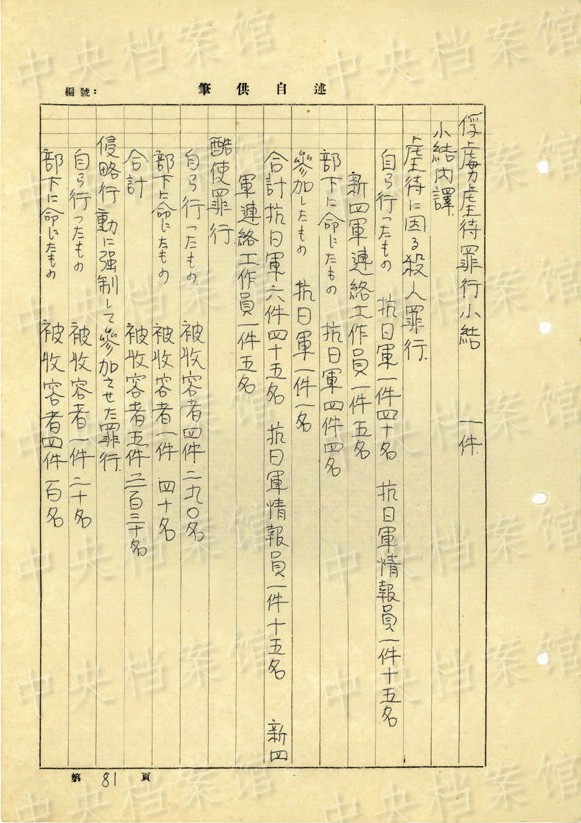 編號：
筆供自述
俘虜虐待罪行小結 一件
小結内譯
虐待に因る殺人罪行
自ら行ったもの 抗日軍一件四十名 抗日軍情報員一件十五名
新四軍連絡工作員一件五名
部下に命じたもの 抗日軍四件四名
參加したもの 抗日軍一件一名
合計抗日軍六件四十五名 抗日軍情報員一件十五名 新四
軍連絡工作員一件五名
酷使罪行
自ら行ったもの 被收容者四件二九〇名
部下に命じたもの 被收容者一件 四十名
合計 被收容者五件三百三十名
侵略行動に強制して參加させた罪行
自ら行ったもの 被收容者一件二十名
部下に命じたもの 被收容者四件 百名
第 81 頁
中央档案馆